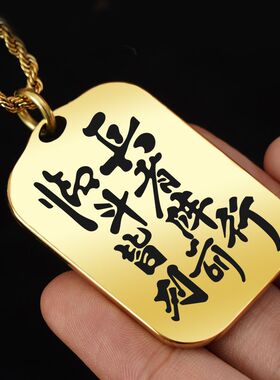 临兵
斗者
皆阵
列前行